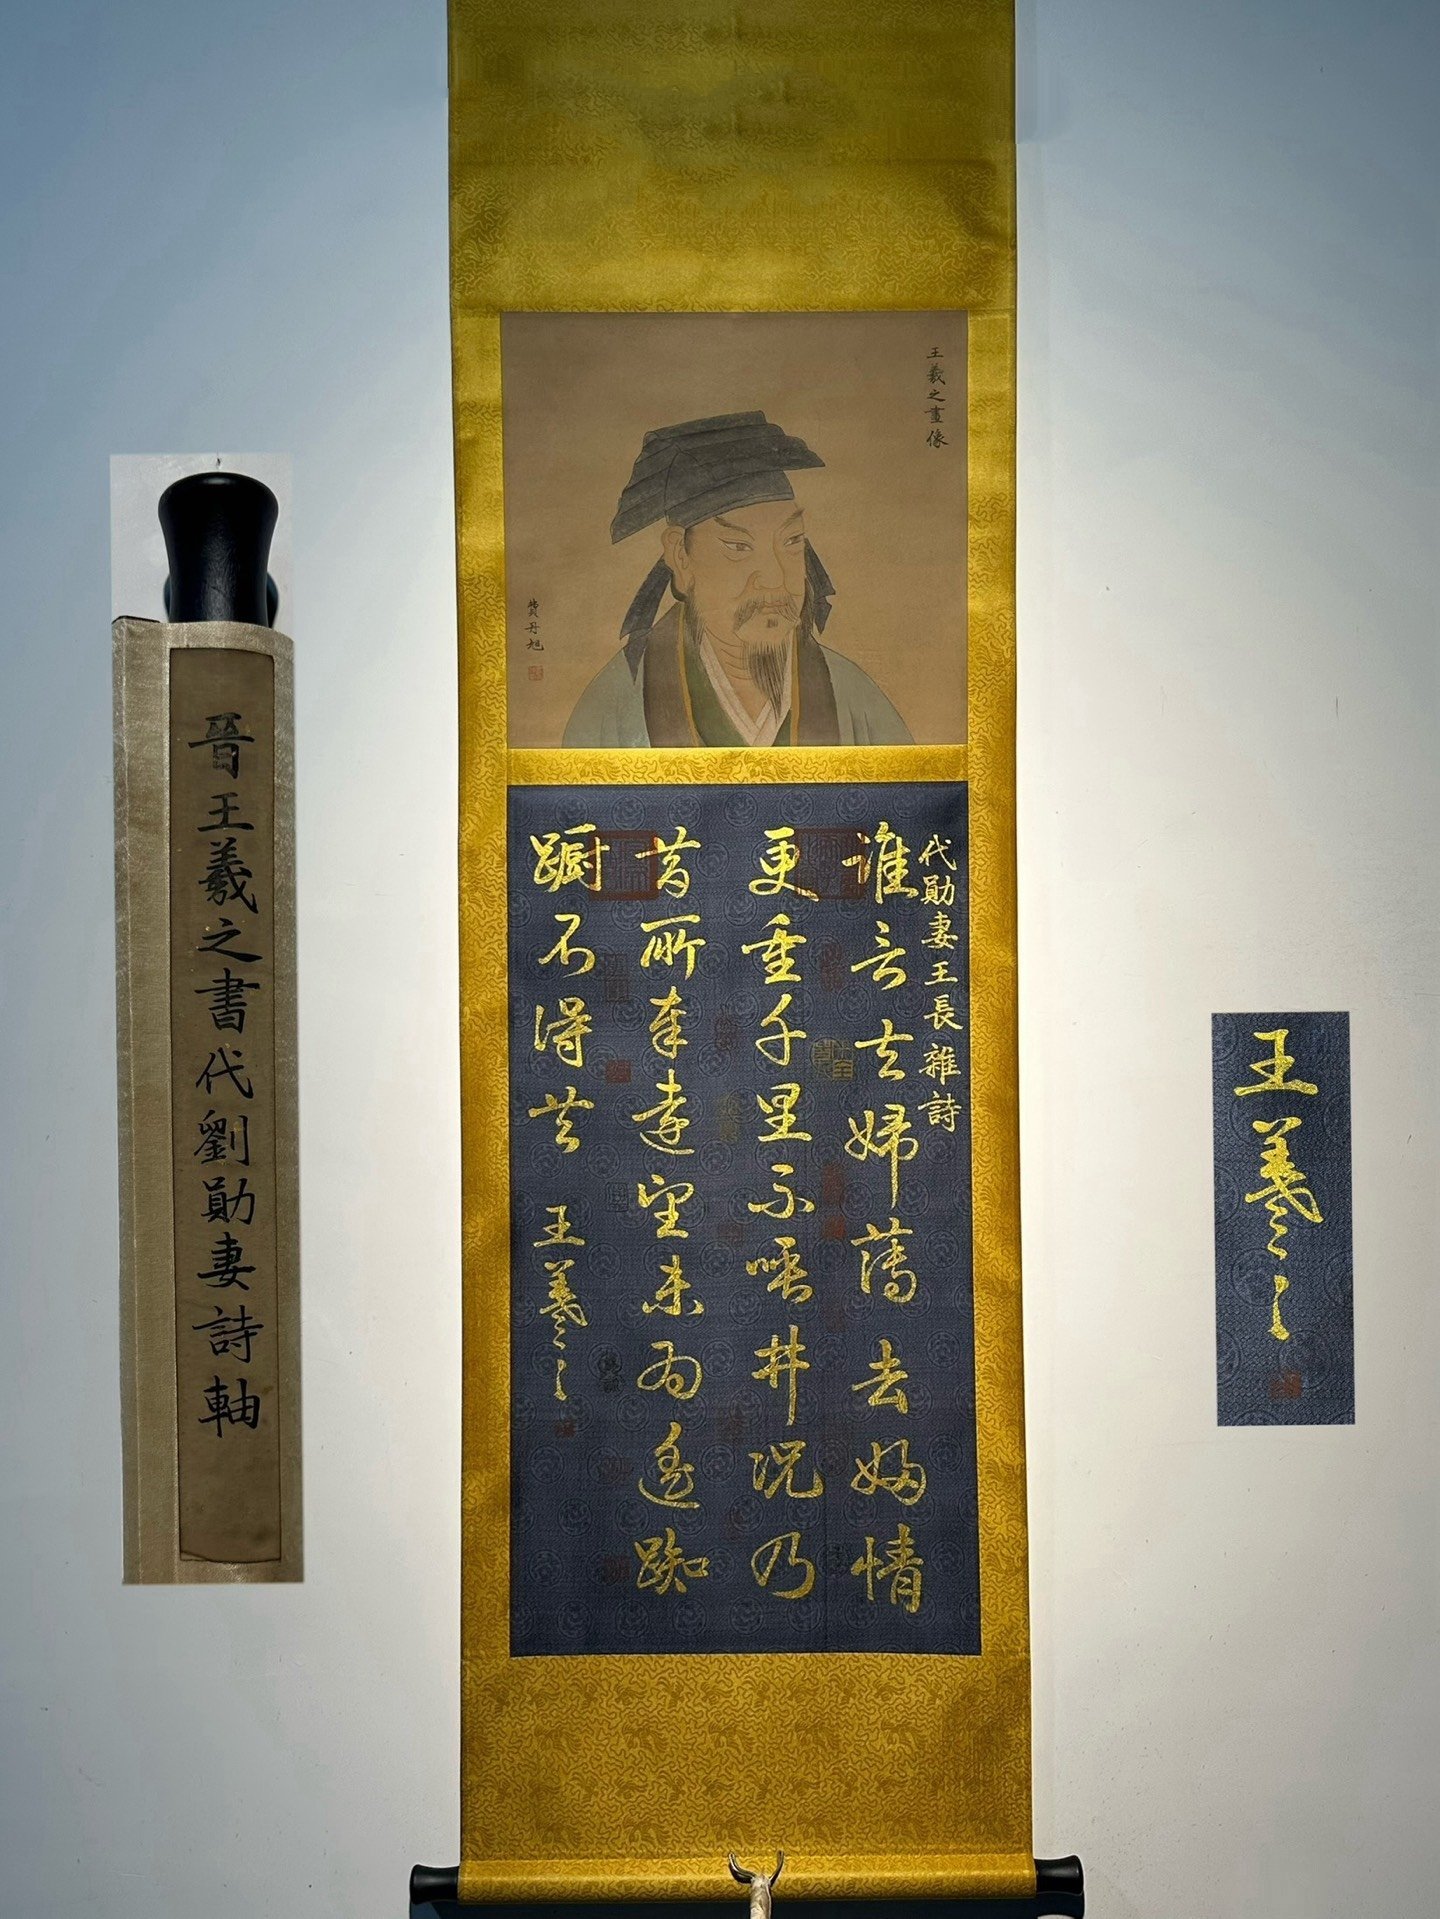 王羲之畫像
費丹旭
代勛妻王長雜詩
誰言去婦薄去婦情
更重千里不唾井況乃
昔所奉遠望未為遙踟
躕不得共
王羲之
晉王羲之書代劉勛妻詩軸
王羲之